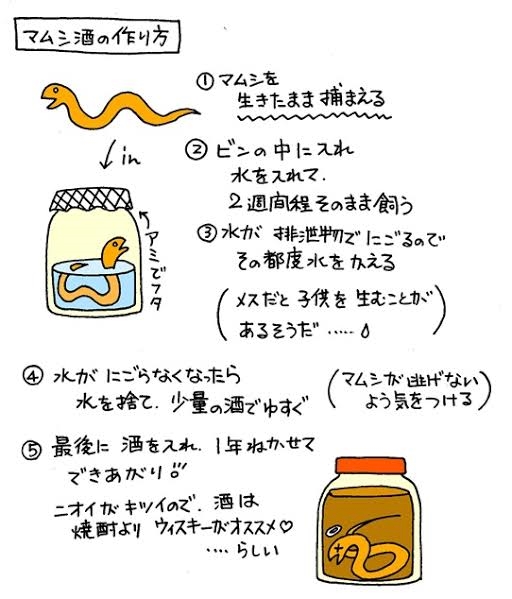 マムシ酒の作り方
① マムシを
生きたまま捕まえる
↓in
② ビンの中に入れ
水を入れて.
2週間程そのまま飼う
アミでフタ
③ 水が排泄物でにごるので
その都度水をかえる
(メスだと子供を生むことが
あるそうだ.....)
④ 水がにごらなくなったら
水を捨て.少量の酒でゆすぐ
(マムシが逃げない
よう気をつける)
⑤ 最後に酒を入れ.1年ねかせて
できあがり!!
ニオイがキツイので.酒は
焼酎よりウィスキーがオススメ♡
....らしい